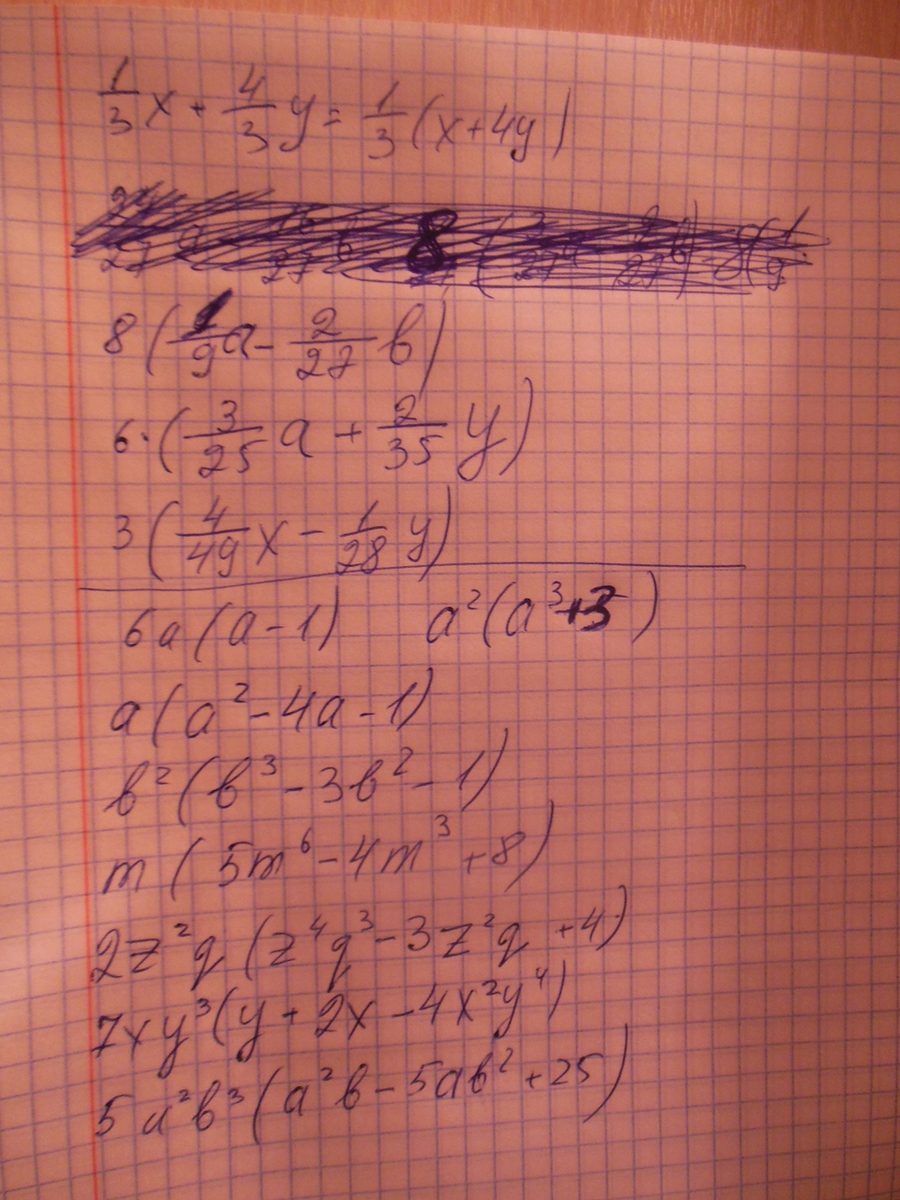 1/3 x + 4/3 y = 1/3 (x + 4y)
8
8 (1/9 a - 2/27 b)
6 · (3/25 a + 2/35 y)
3 (4/49 x - 1/28 y)
6a (a - 1) a² (a³ + 3)
a (a² - 4a - 1)
b² (b³ - 3b² - 1)
m (5m⁶ - 4m³ + 8)
2z²q (z⁴q³ - 3z²q + 4)
7xy³ (y + 2x - 4x²y⁴)
5a²b³ (a²b - 5ab² + 25)